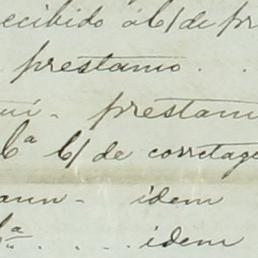 ecibido á C/ de pr
prestamo . .
ui - prestam
Cª C/ de corretage
ann - idem
ª . . . idem